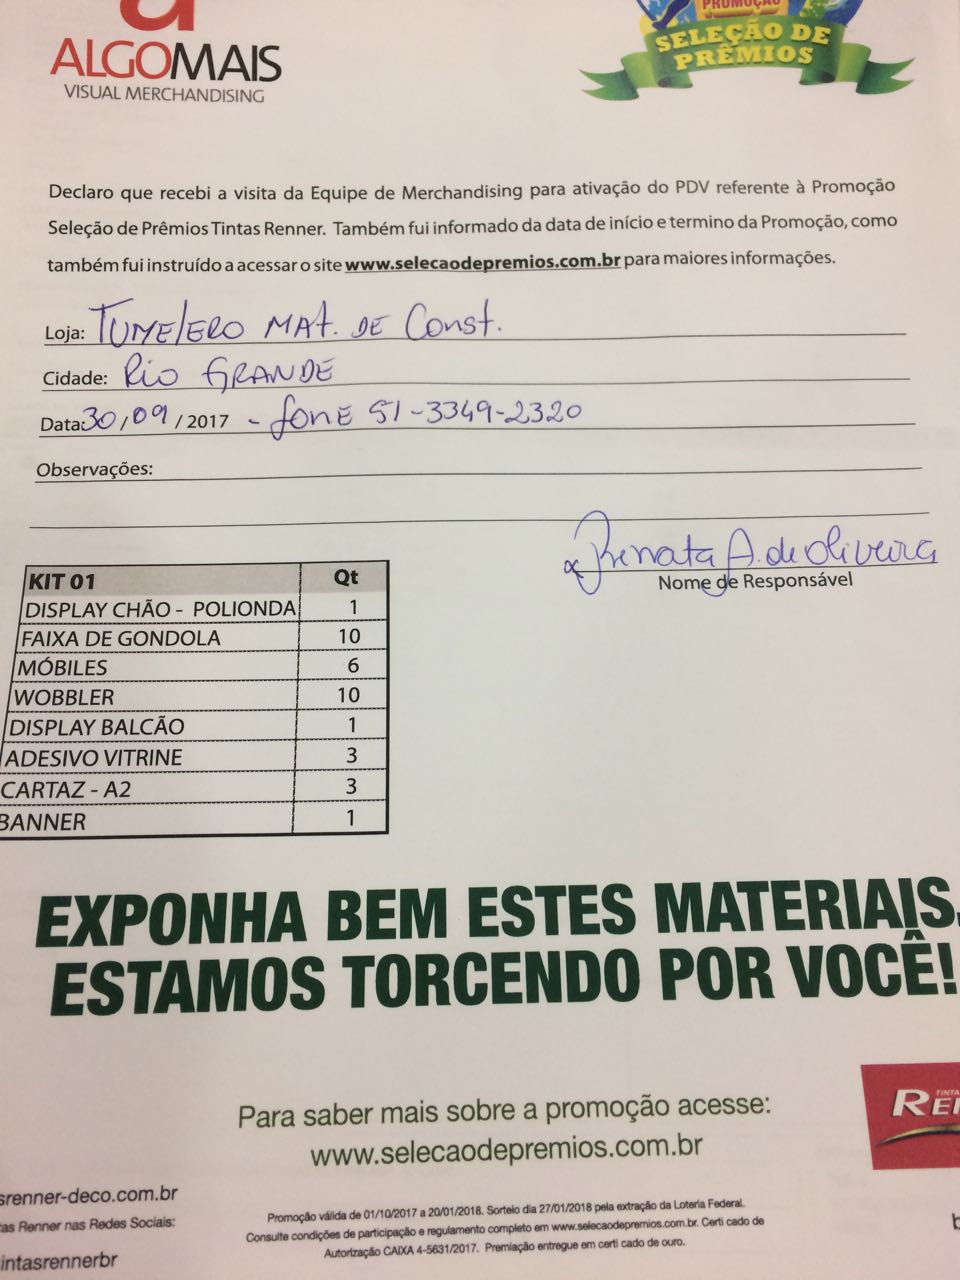 ALGOMAIS
VISUAL MERCHANDISING
PROMOÇÃO
SELEÇÃO DE
PRÊMIOS
Declaro que recebi a visita da Equipe de Merchandising para ativação do PDV referente à Promoção
Seleção de Prêmios Tintas Renner. Também fui informado da data de início e termino da Promoção, como
também fui instruído a acessar o site www.selecaodepremios.com.br para maiores informações.
Loja: TUMELERO MAT. DE Const.
Cidade: RIO GRANDE
Data: 30/09/2017 - fone 51-3349-2320
Observações:
Renata A. de Oliveira
Nome de Responsável
KIT 01 Qt
DISPLAY CHÃO - POLIONDA 1
FAIXA DE GONDOLA 10
MÓBILES 6
WOBBLER 10
DISPLAY BALCÃO 1
ADESIVO VITRINE 3
CARTAZ - A2 3
BANNER 1
EXPONHA BEM ESTES MATERIAIS,
ESTAMOS TORCENDO POR VOCÊ!
Para saber mais sobre a promoção acesse:
www.selecaodepremios.com.br
TINTA
REN
srenner-deco.com.br
as Renner nas Redes Sociais:
intasrennerbr
Promoção válida de 01/10/2017 a 20/01/2018. Sorteio dia 27/01/2018 pela extração da Loteria Federal.
Consulte condições de participação e regulamento completo em www.selecaodepremios.com.br. Certi cado de
Autorização CAIXA 4-5631/2017. Premiação entregue em certi cado de ouro.